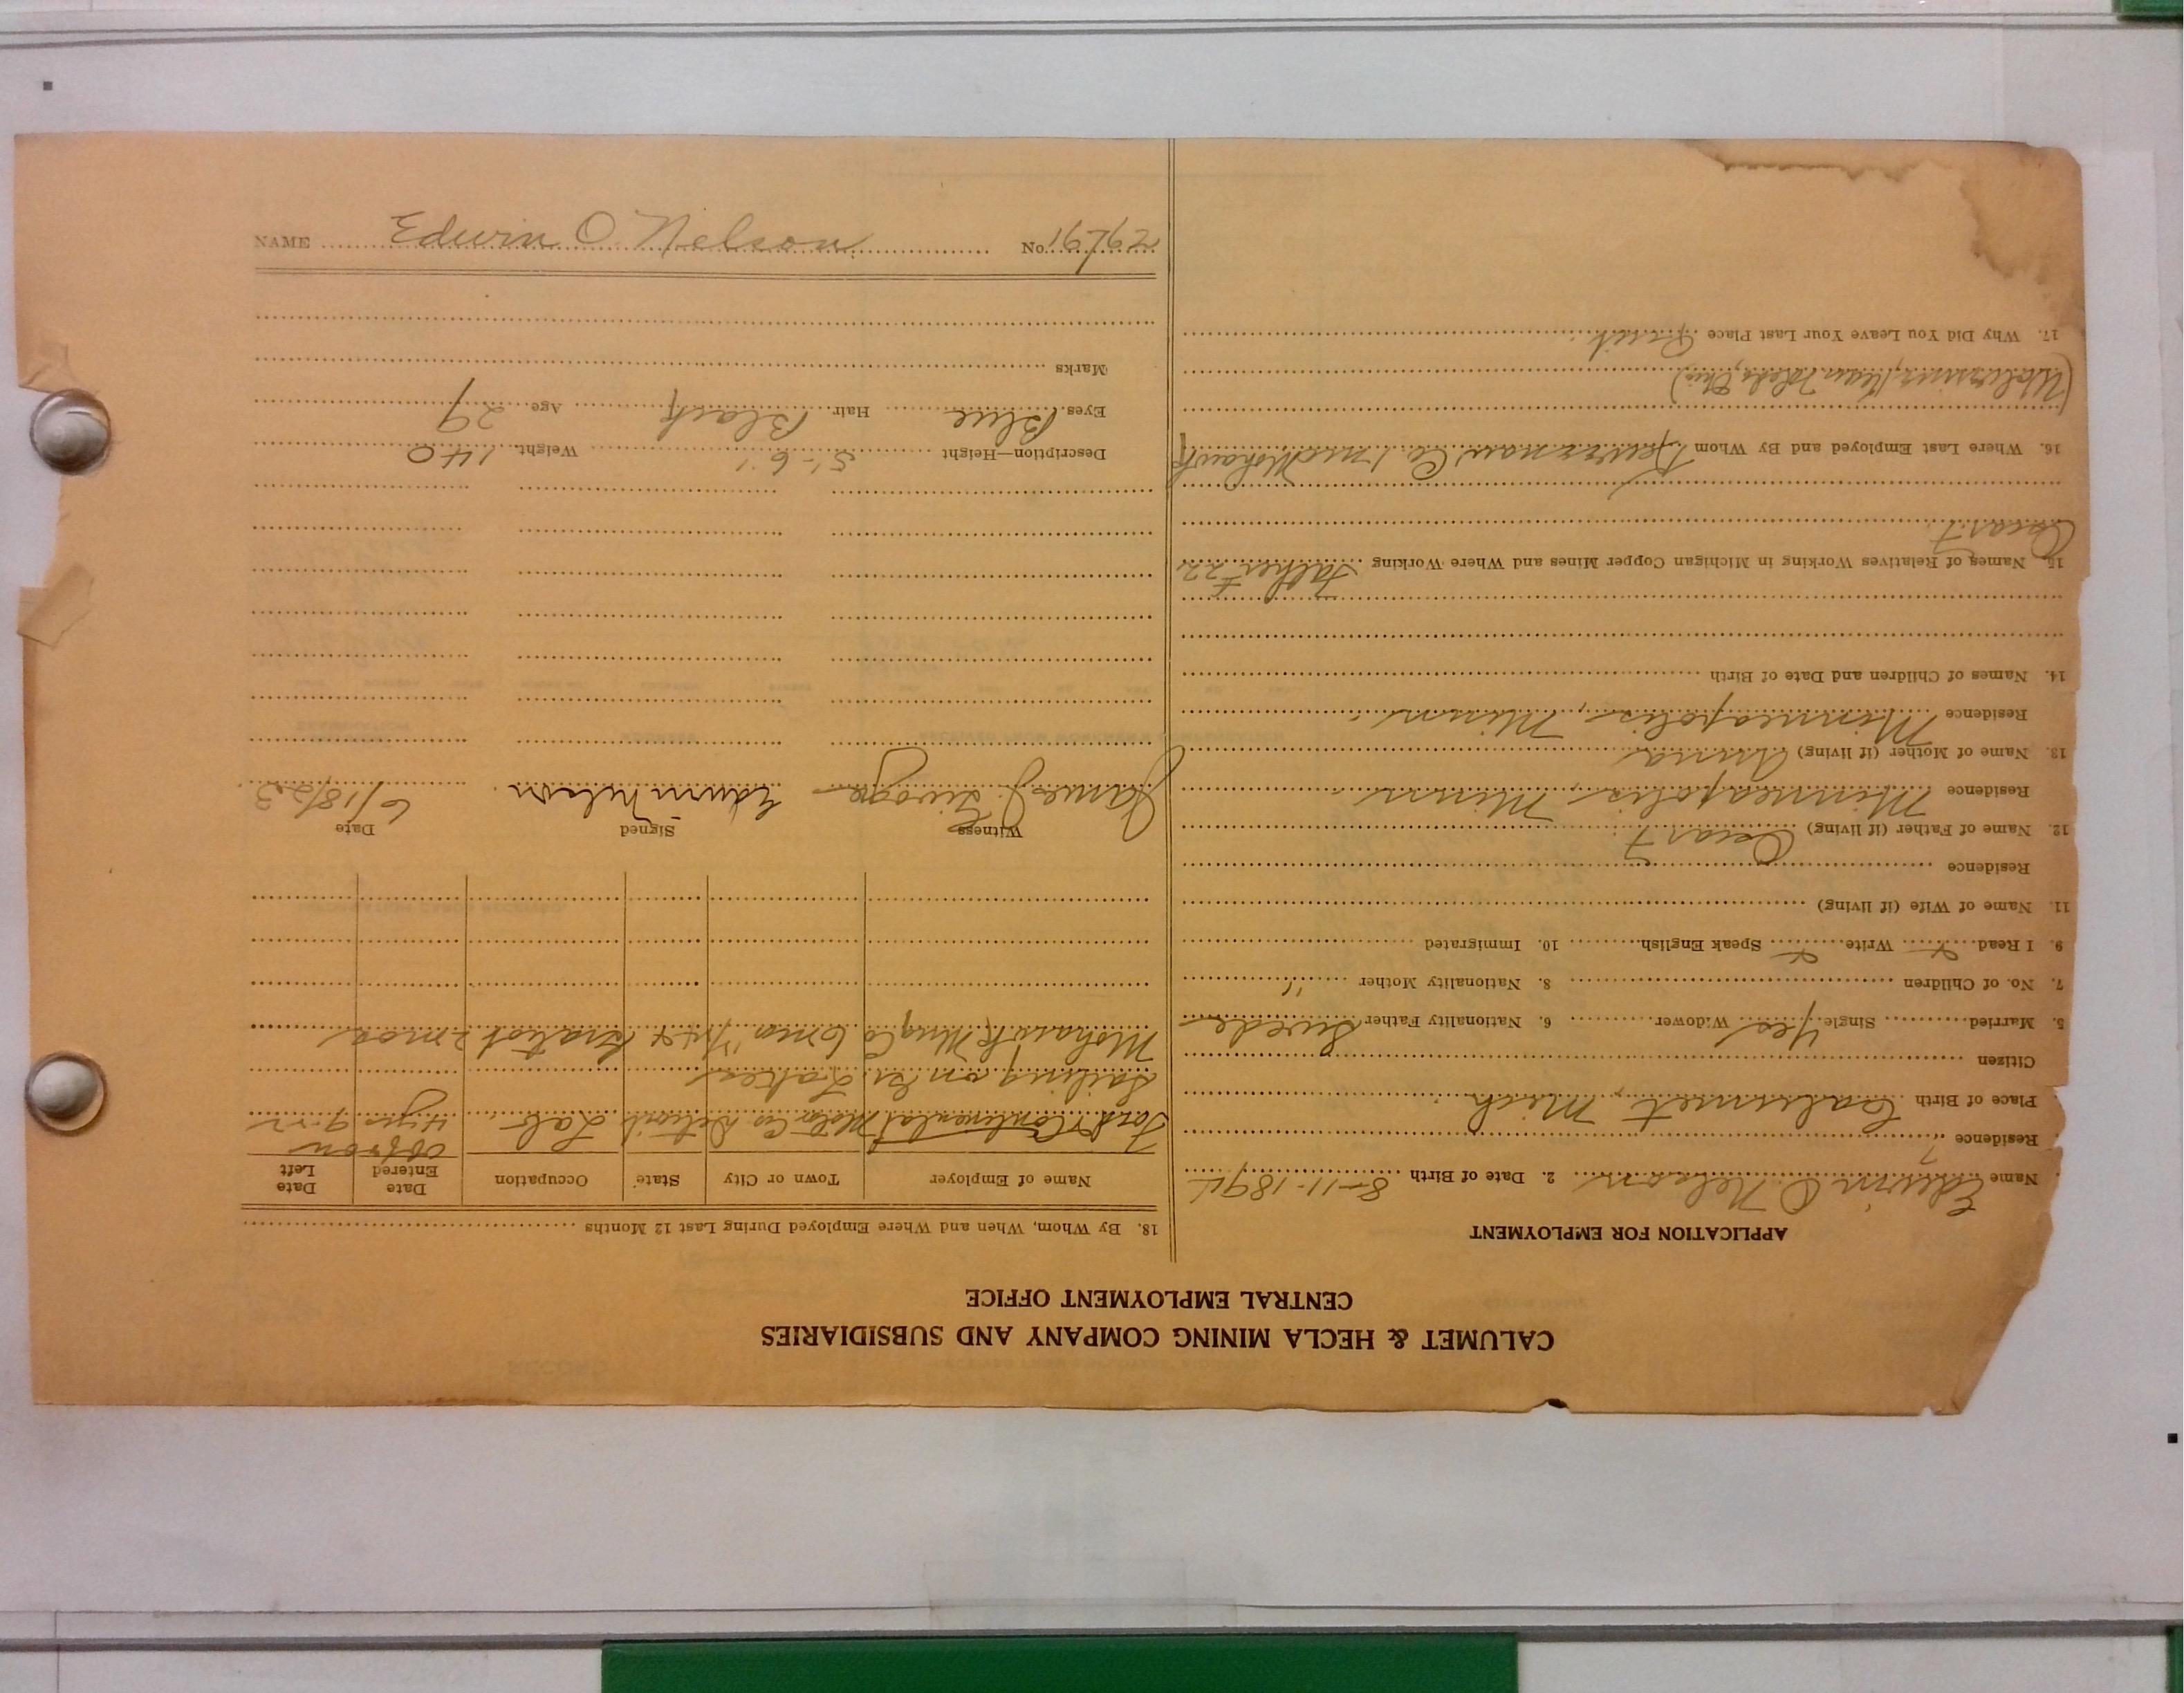 CALUMET & HECLA MINING COMPANY AND SUBSIDIARIES
CENTRAL EMPLOYMENT OFFICE
APPLICATION FOR EMPLOYMENT
Name Edwin O Nelson 2. Date of Birth 8-11-1894
Residence
Place of Birth Calumet, Mich
Citizen
5. Married Single yes Widower 6. Nationality Father Swede
7. No. of Children 8. Nationality Mother "
9. I Read x Write x Speak English 10. Immigrated
11. Name of Wife (if living)
Residence
12. Name of Father (if living) Oscar F
Residence Minneapolis, Minn
13. Name of Mother (if living) Anna
Residence Minneapolis, Minn.
14. Names of Children and Date of Birth
15. Names of Relatives Working in Michigan Copper Mines and Where Working Father
Oscar F
16. Where Last Employed and By Whom Keweenaw Co. Mohawk
17. Why Did You Leave Your Last Place Quit
18. By Whom, When and Where Employed During Last 12 Months
Name of Employer Town or City State Occupation Date Entered Date Left
off & on
Ford & Continental Motor Co Detroit Lab 4 yrs
Sailing on Gr. Lakes
Mohawk Mng Co 2 mos
Witness Signed Date
James J. Edwin Nelson 6/18/23
Description—Height 5'-6" Weight 140
Eyes Blue Hair Black Age 29
Marks
NAME Edwin O Nelson No. 19792